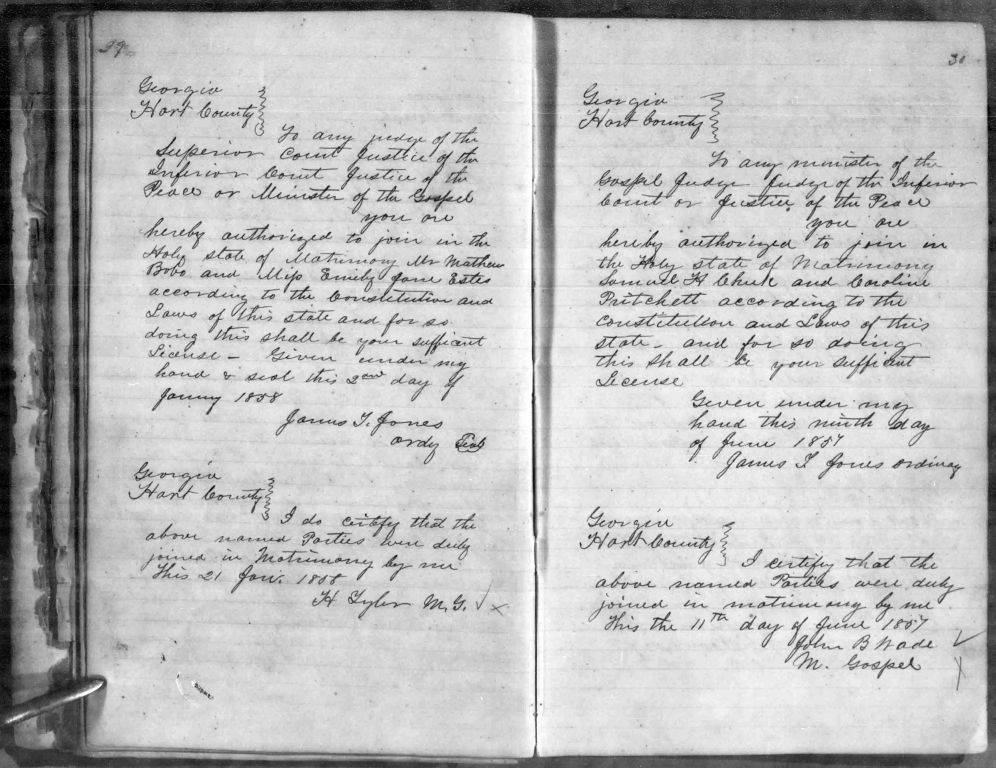 29
Georgia
Hart County
To any judge of the
Superior Court Justice of the
Inferior Court Justice of the
Peace or Minister of the Gospel
you are
hereby authorized to join in the
Holy state of Matrimony Mr Mathew
Bobo and Miss Emily Jane Estes
according to the Constitution and
Laws of this state and for so
doing this shall be your sufficient
License – Given under my
hand & seal this 2nd day of
Janny 1858
James T. Jones
Ordy Seal
Georgia
Hart County
I do certify that the
above named Parties were duly
joined in Matrimony by me
This 21 Jan. 1858
H Tyler M.G.
30
Georgia
Hart County
To any minister of the
Gospel Judge Judge of the Inferior
Court or Justice of the Peace
you are
hereby authorized to join in
the Holy state of Matrimony
Samuel H Cheek and Caroline
Pritchett according to the
constitution and Laws of this
state – and for so doing
this shall be your sufficient
License
Given under my
hand this ninth day
of June 1857
James T Jones ordinary
Georgia
Hart County
I certify that the
above named Parties were duly
joined in matrimony by me
This the 11th day of June 1857
John B Wade
M. Gospel